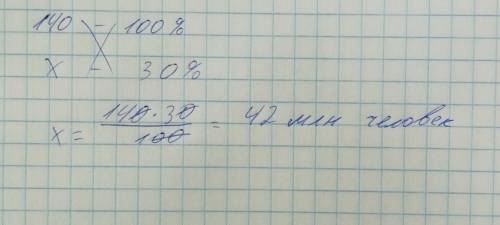 140 - 100%
x - 30%
x = 140·30 / 100 = 42 млн человек